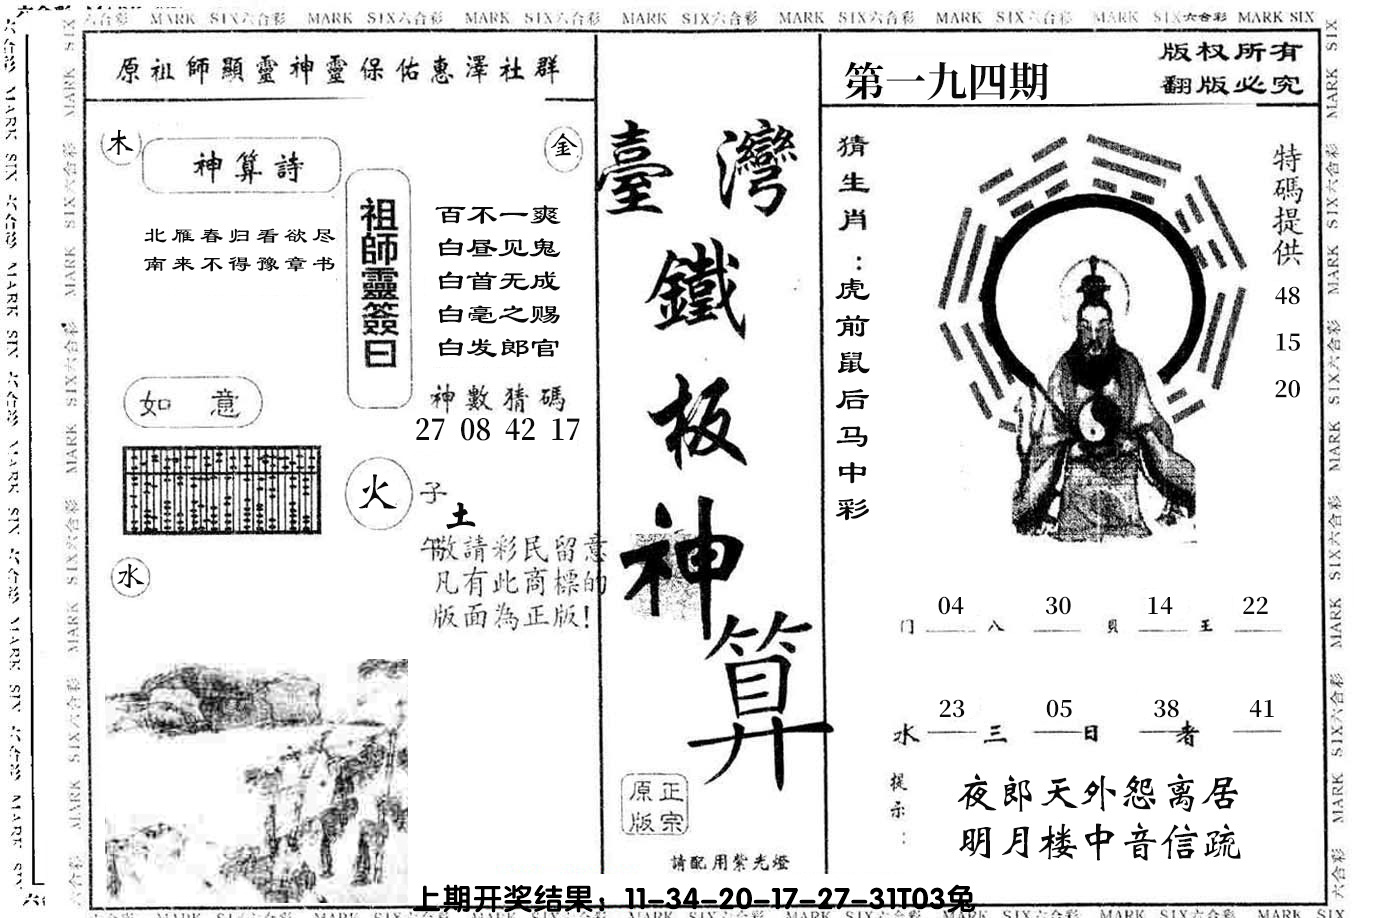 六合彩 MARK SIX六合彩 MARK SIX六合彩 MARK SIX六合彩 MARK SIX六合彩 MARK SIX六合彩 MARK SIX六合彩 MARK SIX六合彩 MARK SIX
原祖師顯靈神靈保佑惠澤社群
木
金
神算詩
北雁春归看欲尽
南来不得豫章书
祖師靈簽曰
百不一爽
白昼见鬼
白首无成
白毫之赐
白发郎官
神數猜碼
27 08 42 17
如 意
火
子
土
午
水
敬請彩民留意
凡有此商標的
版面為正版!
臺灣
鐵
板
神
算
正宗
原版
請配用紫光燈
第一九四期
版权所有
翻版必究
猜生肖:虎前鼠后马中彩
特碼提供
48
15
20
04 30 14 22
门 八 貝 王
23 05 38 41
水 三 日 者
提示:
夜郎天外怨离居
明月楼中音信疏
上期开奖结果：11-34-20-17-27-31T03兔